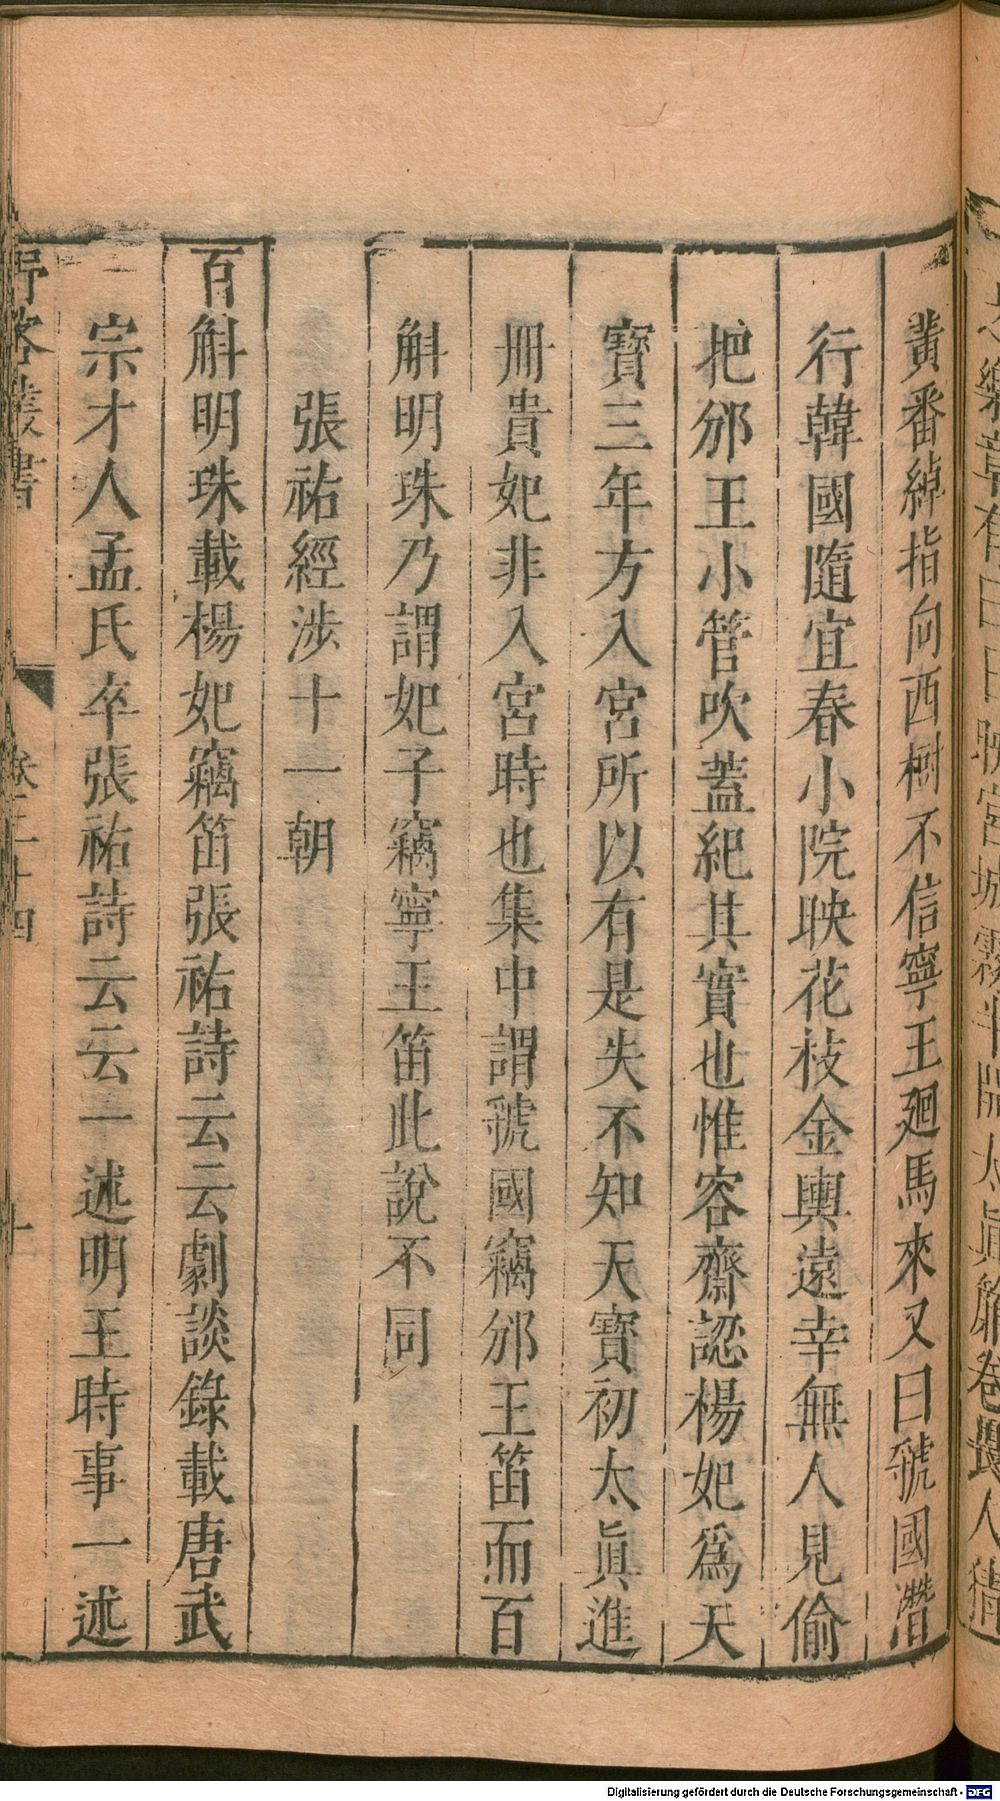 黃番綽指向西樹不信寧王廻馬來又曰虢國潛
行韓國隨宜春小院映花枝金輿遠幸無人見偷
把邠王小管吹蓋紀其實也惟容齋認楊妃爲天
寶三年方入宮所以有是失不知天寶初太眞進
冊貴妃非入宮時也集中謂虢國竊邠王笛而百
斛明珠乃謂妃子竊寧王笛此說不同
張祐經涉十一朝
百斛明珠載楊妃竊笛張祐詩云云劇談錄載唐武
宗才人孟氏卒張祐詩云云一述明王時事一述
野客叢書
卷二十四
十一
Digitalisierung gefördert durch die Deutsche Forschungsgemeinschaft - DFG